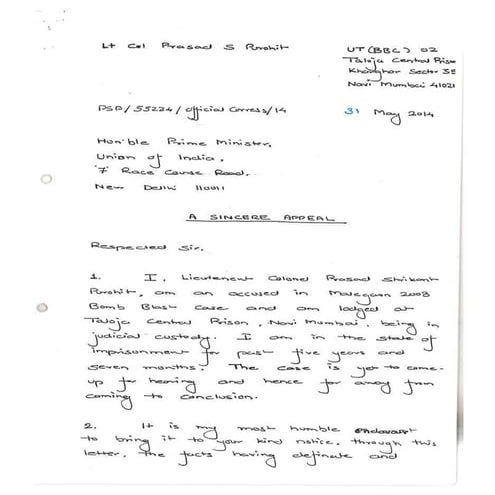 Lt Col Prasad S Purohit
UT (BBC) 02
Taloja Central Prison
Kharghar Sector 35
Navi Mumbai 41021
PSP/55224/Official Corress/14
31 May 2014
Hon'ble Prime Minister,
Union of India,
'7' Race Course Road,
New Delhi 110011
A SINCERE APPEAL
Respected Sir,
1. I, Lieutenent Colonel Prasad Shrikant
Purohit, am an accused in Malegaon 2008
Bomb Blast Case and am lodged at
Taloja Central Prison, Navi Mumbai, being in
judicial custody. I am in the state of
imprisonment for past five years and
seven months. The case is yet to come-
up for hearing and hence far away from
coming to conclusion.
2. It is my most humble endeavour
to bring it to your kind notice, through this
letter, the facts having definate and